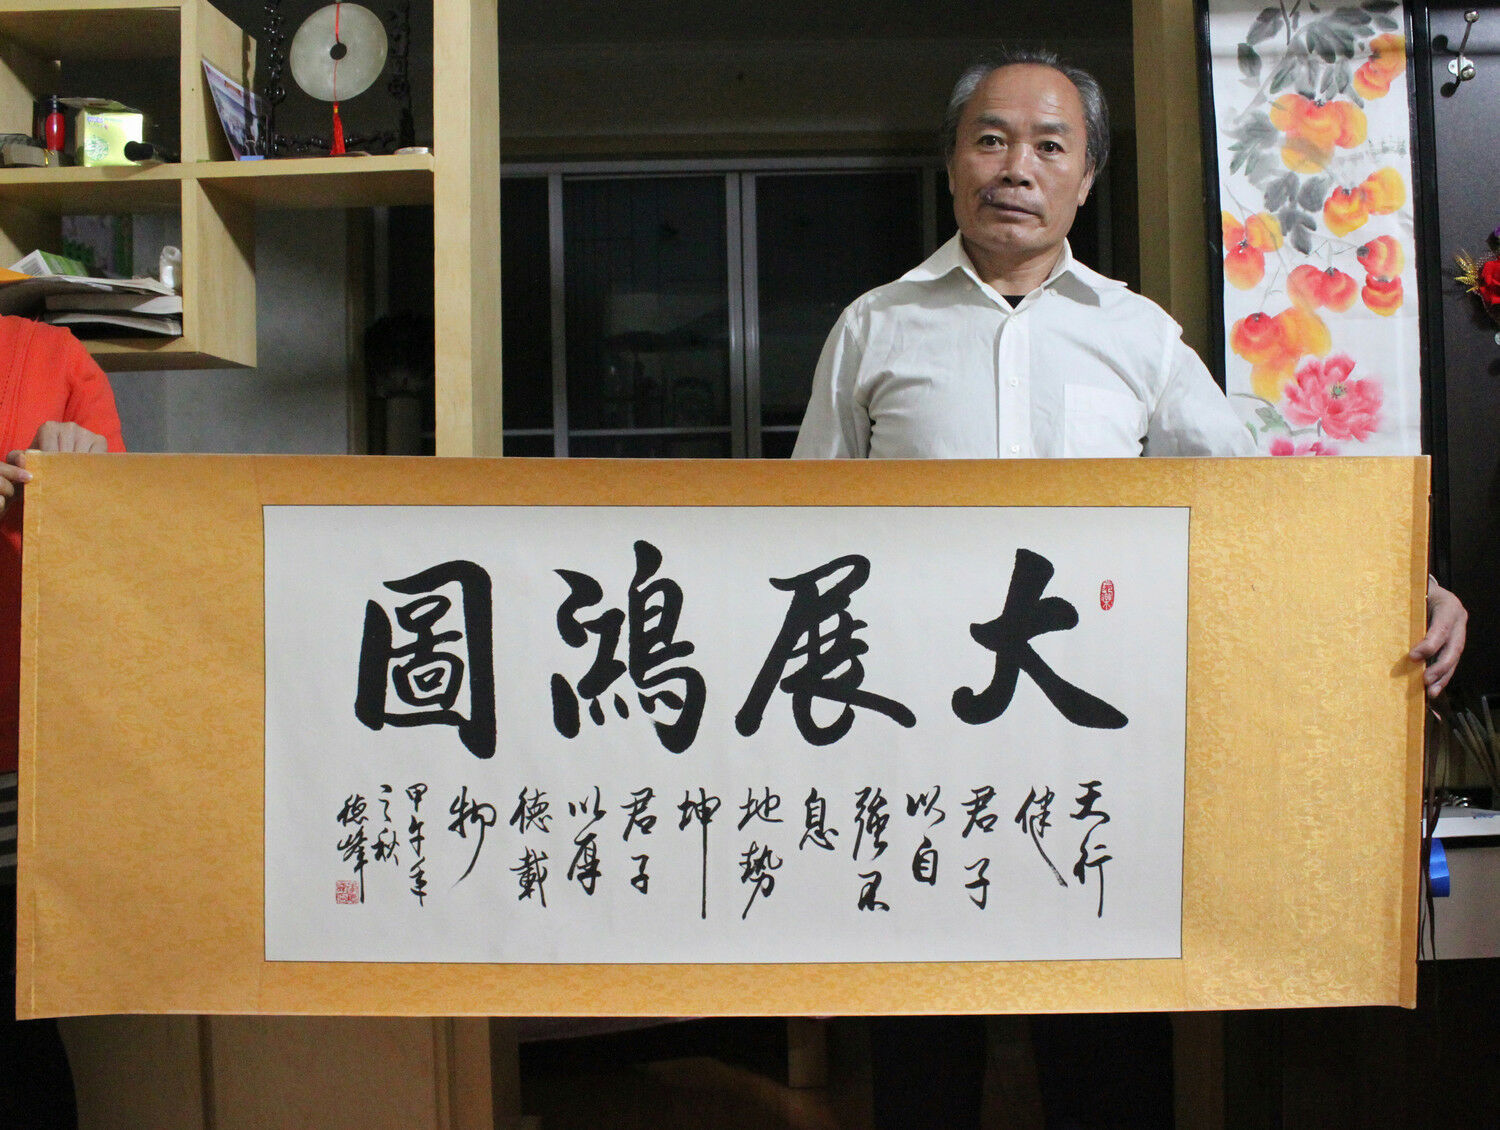 大展鴻圖
天行
健
君子
以自
強不
息
地勢
坤
君子
以厚
德載
物
甲午年
之秋
德峰